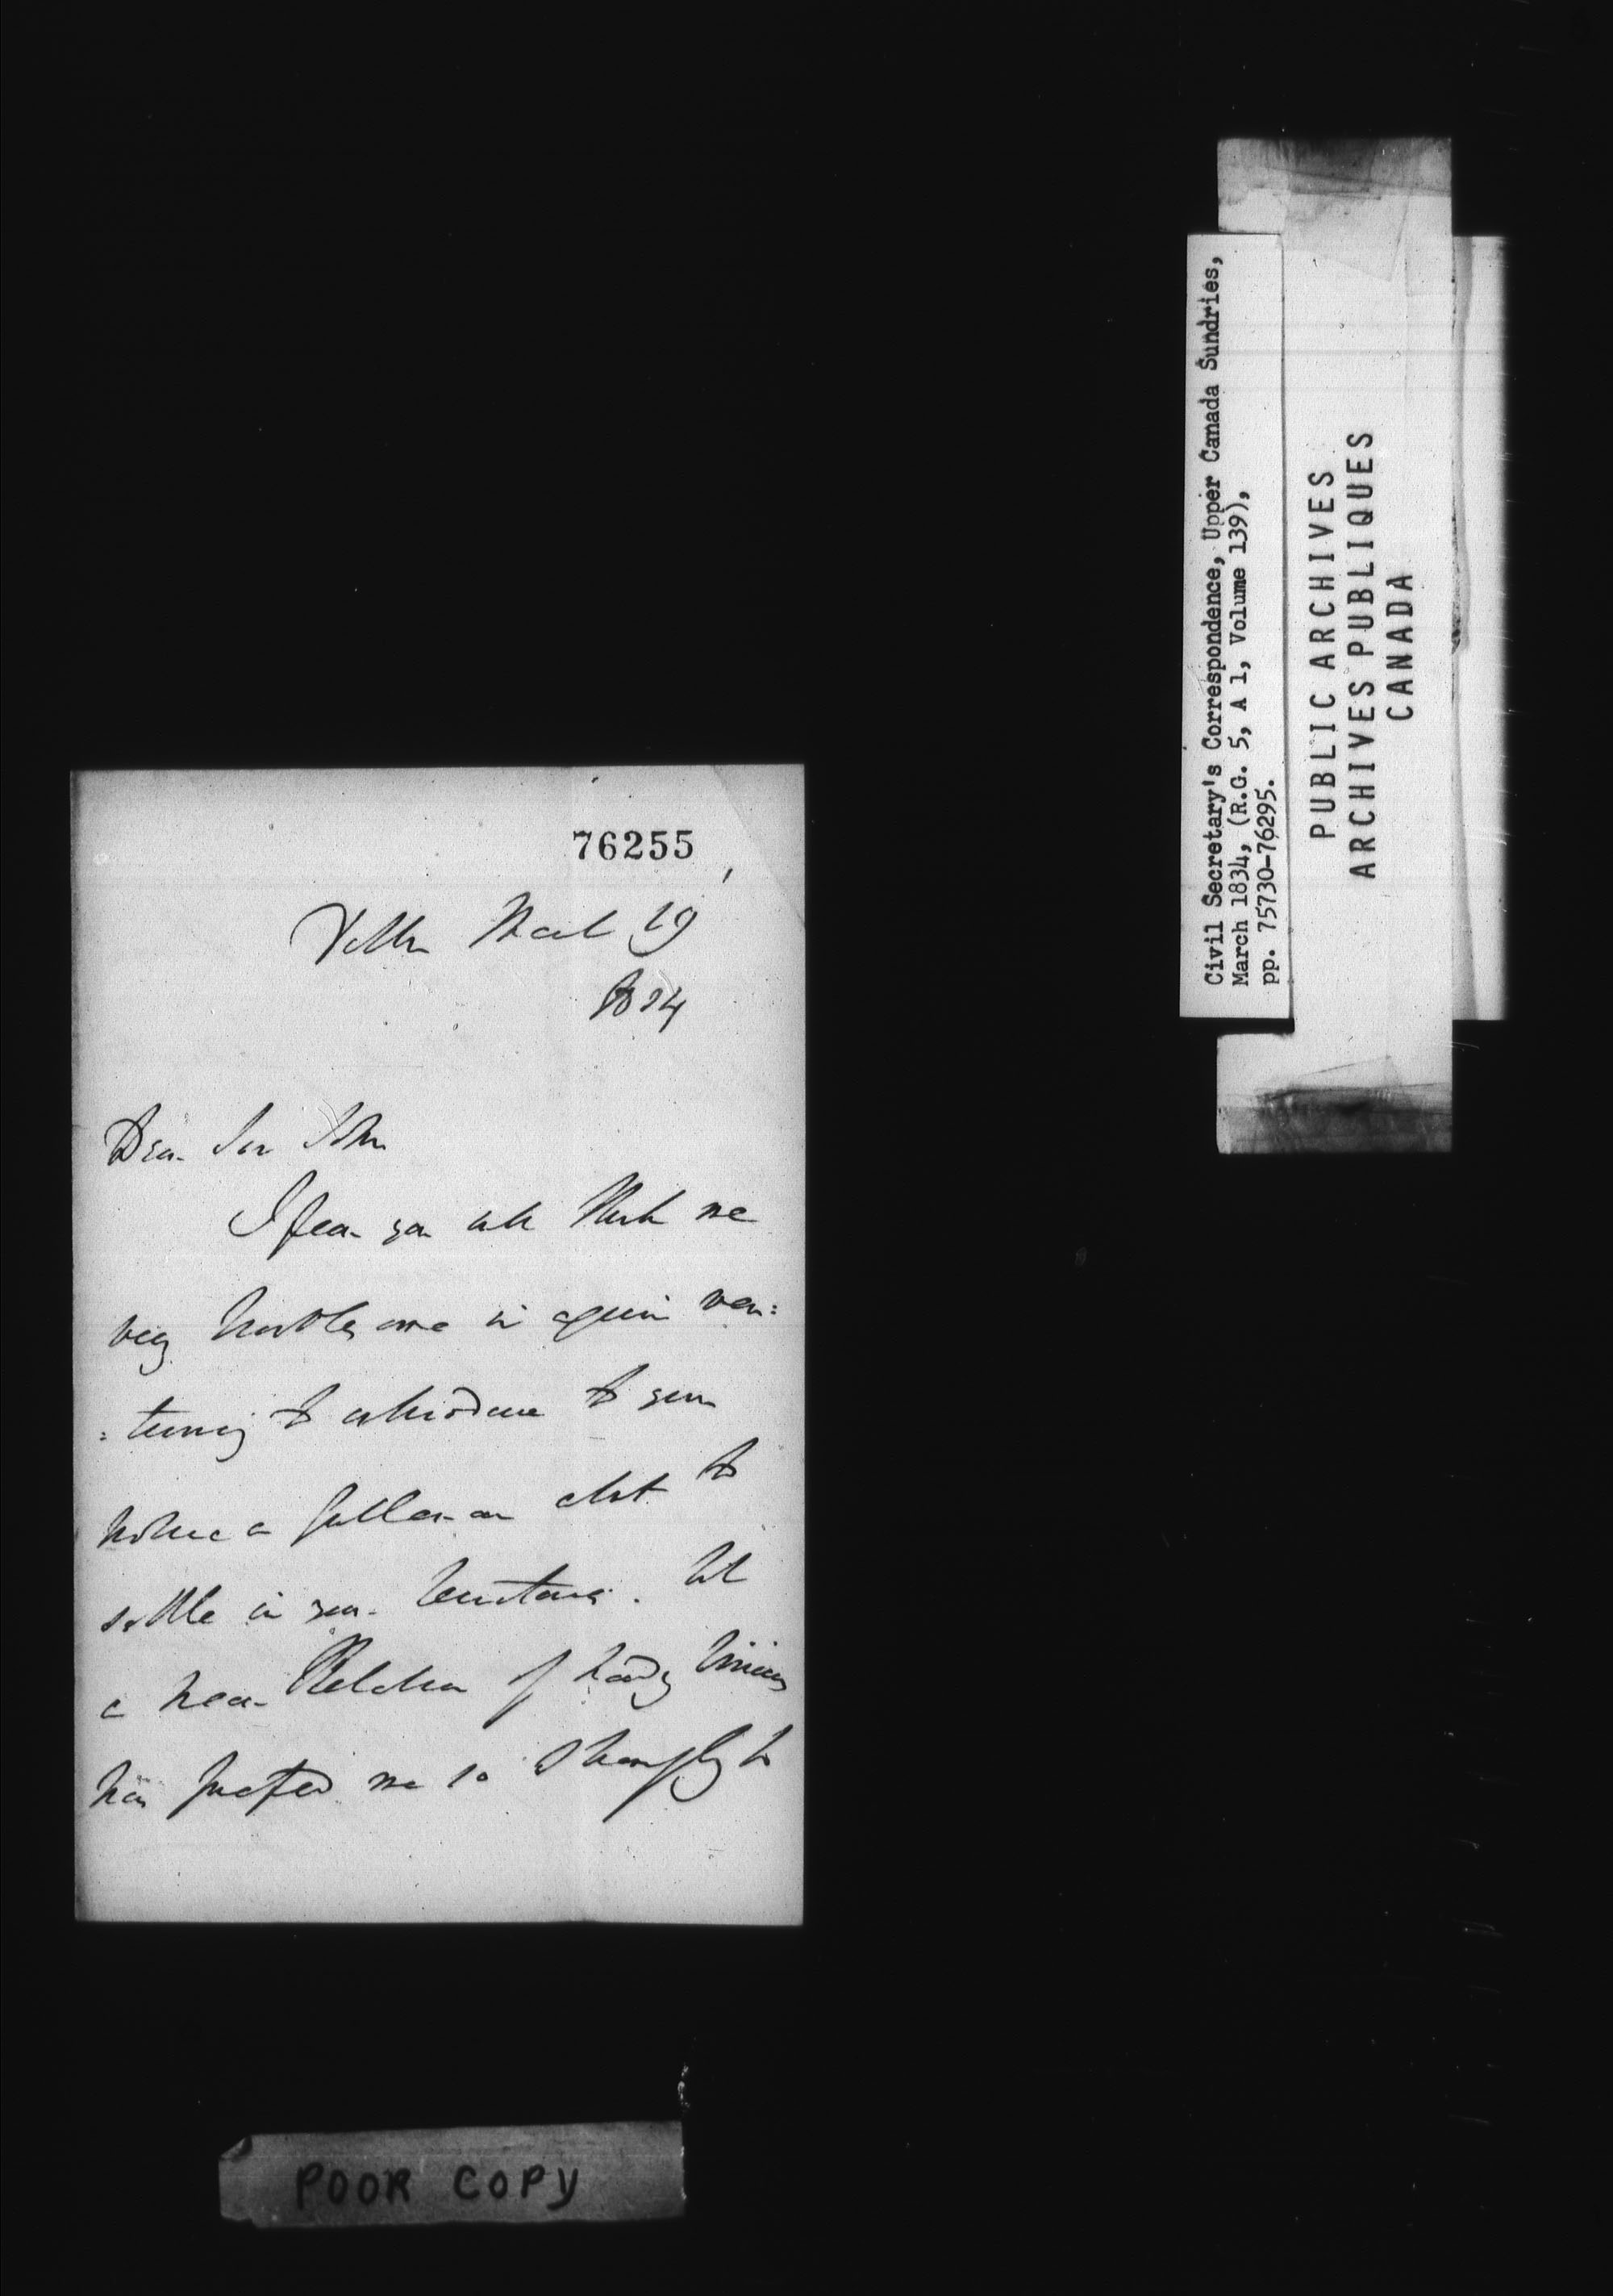 76255
March 19
1834
Dear Sir John
I fear you will think me
very troublesome in again ven:
:turing to introduce to your
notice a Gentleman about to
settle in your territories. But
a near Relation of Lady
has pressed me so strongly to
Civil Secretary's Correspondence, Upper Canada Sundries,
March 1834, (R.G. 5, A 1, Volume 139),
pp. 75730-76295.
PUBLIC ARCHIVES
ARCHIVES PUBLIQUES
CANADA
POOR COPY